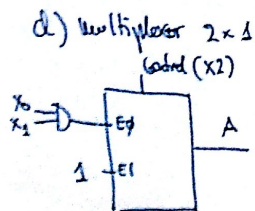 d) Multiplexor 2x1
Control (X2)
X0
X1
E0
A
1
E1